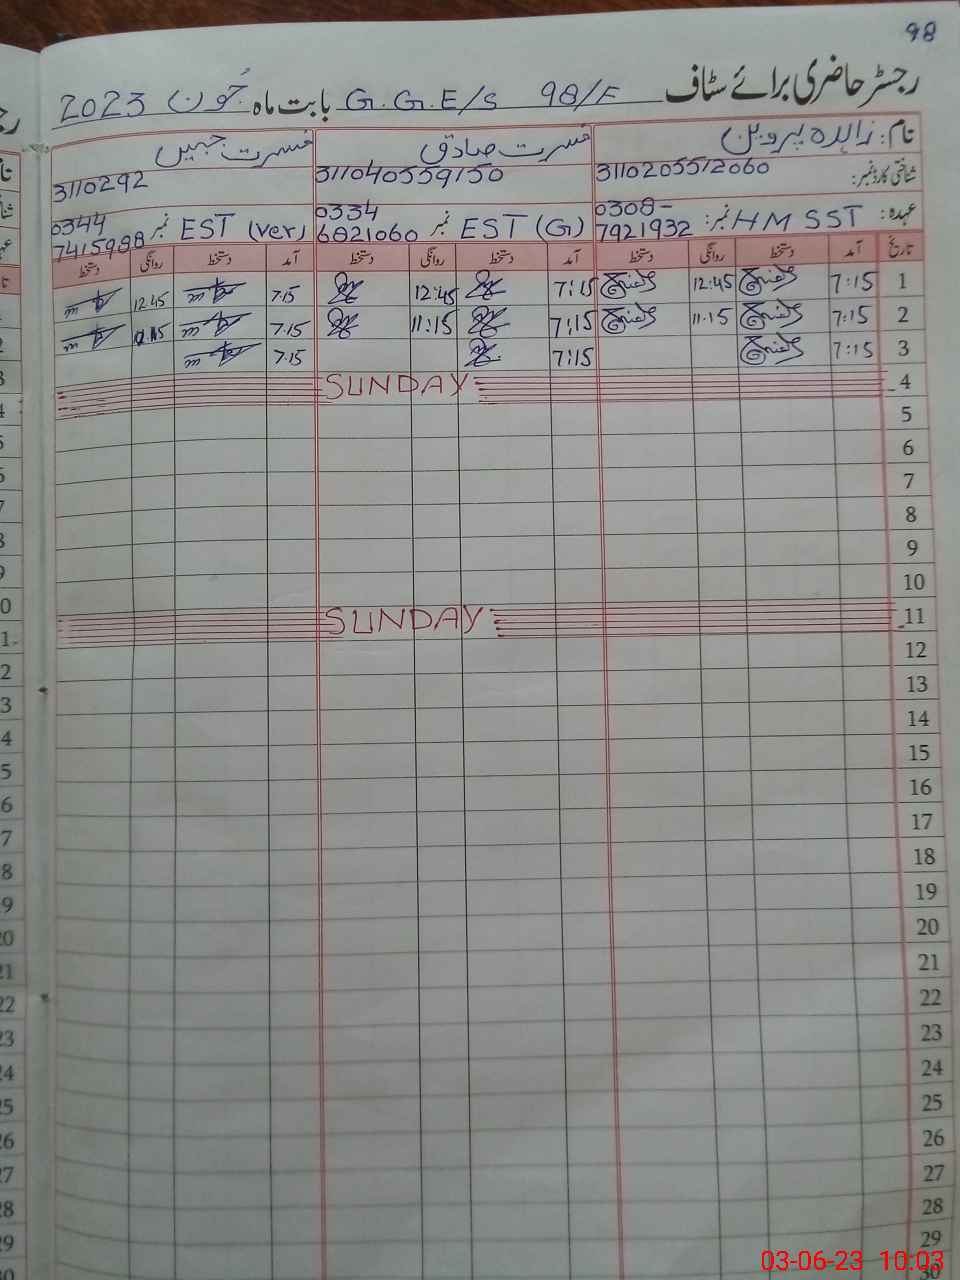 98
رجسٹر حاضری برائے سٹاف G.G.E/s 98/F بابت ماہ جُون 2023
نام: زاہدہ پروین نصرت صادق نصرت جبیں
شناختی کارڈ نمبر: 3110205512060 311040559150 3110292
عہدہ: HM SST نمبر: 0308-7921932 EST (G) نمبر 0334 6821060 EST (ver) نمبر 0344 7415988
تاریخ آمد دستخط روانگی دستخط آمد دستخط روانگی دستخط آمد دستخط روانگی دستخط
1 7:15 12:45 7:15 12:45 7.15 12.45
2 7:15 11.15 7:15 11:15 7.15
3 7:15 7:15 7.15
4 SUNDAY
5
6
7
8
9
10
11 SUNDAY
12
13
14
15
16
17
18
19
20
21
22
23
24
25
26
27
28
29
30
03-06-23 10:03